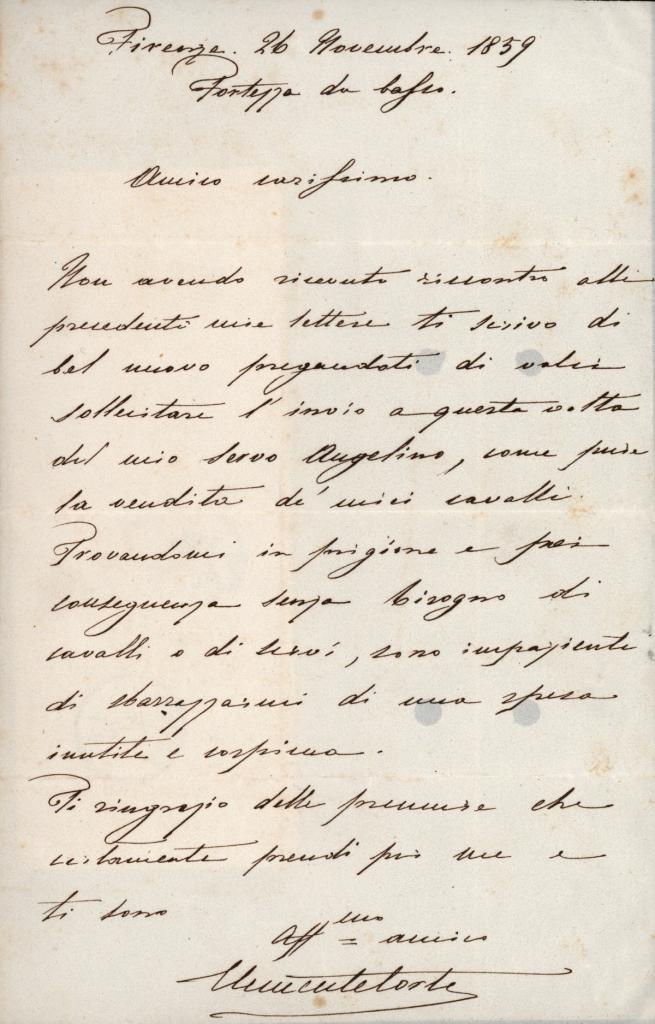 Firenze. 26 Novembre. 1859
Fortezza da basso.
Amico carissimo.
Non avendo ricevuto riscontro alle
precedenti mie lettere ti scrivo di
bel nuovo pregandoti di voler
sollecitare l'invio a questa volta
del mio servo Angelino, come pure
la vendita de' miei cavalli.
Trovandomi in prigione e per
conseguenza senza bisogno di
cavalli o di servi, sono impaziente
di sbarazzarmi di una spesa
inutile e
Ti ringrazio delle premure che
certamente prendi per me e
ti sono
Aff.mo amico
Clemente Corte